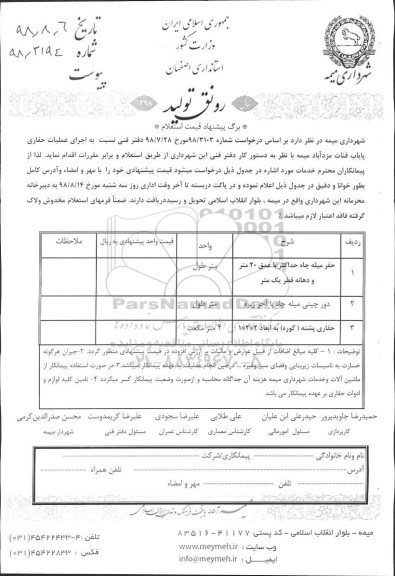 جمهوری اسلامی ایران
وزارت کشور
استانداری اصفهان
تاریخ ۹۸,۸,۶
شماره ۹۸,۳۱۹۴
پیوست
شهرداری میمه
سال رونق تولید ۱۳۹۸
* برگ پیشنهاد قیمت استعلام *
شهرداری میمه در نظر دارد بر اساس درخواست شماره ۹۸/۳۱۰۳مورخ ۹۸/۷/۲۸ دفتر فنی نسبت به اجرای عملیات حفاری
پایاب قنات مزدآباد میمه با نظر به دستور کار دفتر فنی این شهرداری از طریق استعلام و برابر مقررات اقدام نماید. لذا از
پیمانکاران محترم خدمات مورد اشاره در جدول ذیل درخواست میشود قیمت پیشنهادی خود را با مهر و امضاء وآدرس کامل
بطور خوانا و دقیق در جدول ذیل اعلام نموده و در پاکت دربسته تا آخر وقت اداری روز سه شنبه مورخ ۹۸/۸/۱۴ به دبیرخانه
محرمانه این شهرداری واقع در میمه ، بلوار انقلاب اسلامی تحویل و رسیددریافت دارند. ضمناً فرمهای استعلام مخدوش ولاک
گرفته فاقد اعتبار لازم میباشد.
ردیف شرح واحد قیمت واحد پیشنهادی به ریال ملاحظات
۱ حفر میله چاه حداکثر با عمق ۲۰ متر و دهانه قطر یک متر متر طول
۲ دور چینی میله چاه با آجر نیزه متر طول
۳ حفاری پشته ( کوره) به ابعاد ۲*۲*۱ ۴ متر مکعب
توضیحات : ۱ – کلیه مبالغ اضافات از قبیل عوارض و مالیات بر ارزش افزوده در قیمت پیشنهادی منظور گردد. ۲-جبران هرگونه
خسارت به تاسیسات زیربنایی وفضای سبزوغیره ... درحین انجام عملیات به عهده پیمانکار میباشد.۳-در صورت استفاده پیمانکار از
ماشین آلات وخدمات شهرداری میمه هزینه آن جداگانه محاسبه و ازصورت وضعیت پیمانکار کسر میگردد ۴- تامین کلیه لوازم و
ادوات حفاری بر عهده پیمانکار می باشد
حمیدرضا جاویدپرور حیدرعلی ابن علیان علی طلایی علیرضا سجودی علیرضا کریمدوست محسن صدرالدین کرمی
کارپردازی مسئول امورمالی کارشناس معماری کارشناس عمران مسئول دفتر فنی شهردار میمه
نام ونام خانوادگی پیمانکاری/شرکت
آدرس تلفن همراه
تلفن مهر و امضاء
میمه – بلوار انقلاب اسلامی - کد پستی ۴۱۱۷۷-۸۳۵۱۶
وب سایت : www.meymeh.ir
ایمیـــل : info@meymeh.ir
تلفن :۴-۴۵۴۲۲۴۳۳ (۰۳۱)
فکس : ۴۵۴۲۲۸۳۳ (۰۳۱)